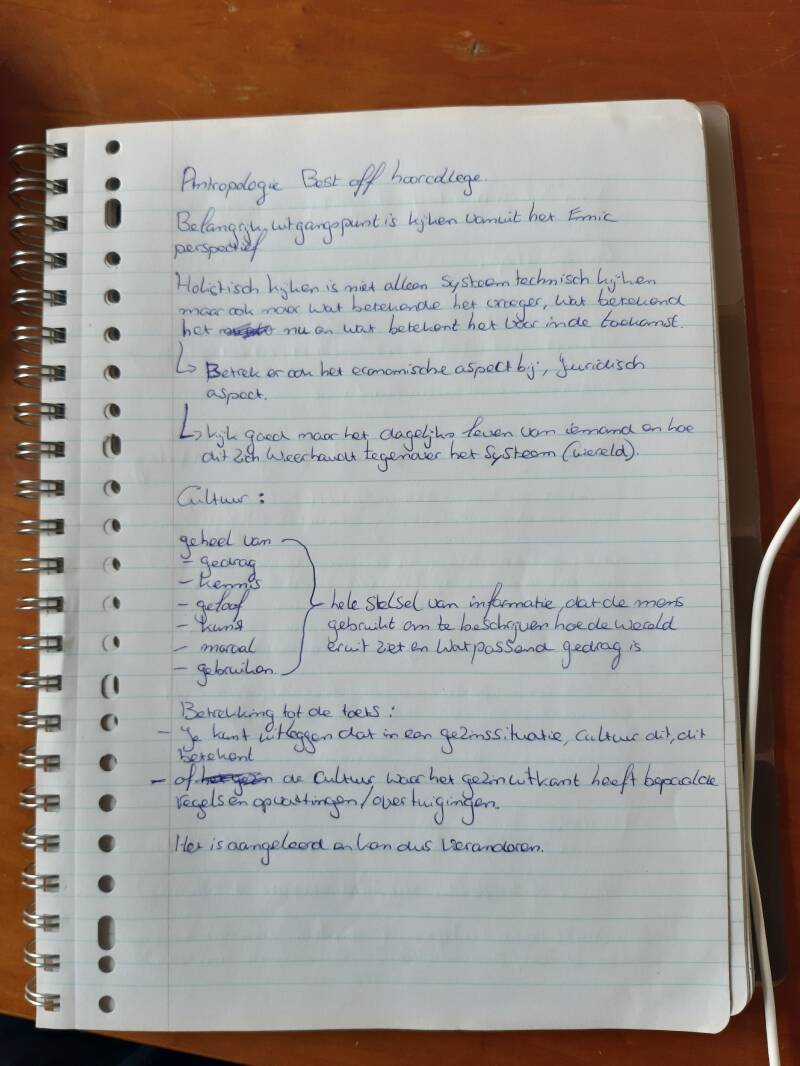 Antropologie Best off hoorcollege.
Belangrijk uitgangspunt is kijken vanuit het Emic
perspectief.
Holistisch kijken is niet alleen systeem technisch kijken
maar ook naar wat betekende het vroeger, wat betekend
het nu en wat betekent het voor in de toekomst.
↳ Betrek er ook het economische aspect bij, juridisch
aspect.
↳ kijk goed naar het dagelijks leven van iemand en hoe
dit zich weerhoudt tegenover het systeem (wereld).
Cultuur :
geheel van
- gedrag
- kennis
- geloof
- kunst
- moraal
- gebruiken.
hele stelsel van informatie, dat de mens
gebruikt om te beschrijven hoe de wereld
eruit ziet en wat passend gedrag is
Betrekking tot de toets :
- Je kunt uitleggen dat in een gezinssituatie, cultuur dit, dit
betekent
- of de cultuur waar het gezin uitkomt heeft bepaalde
regels en opvattingen/overtuigingen.
Het is aangeleerd en kan dus veranderen.